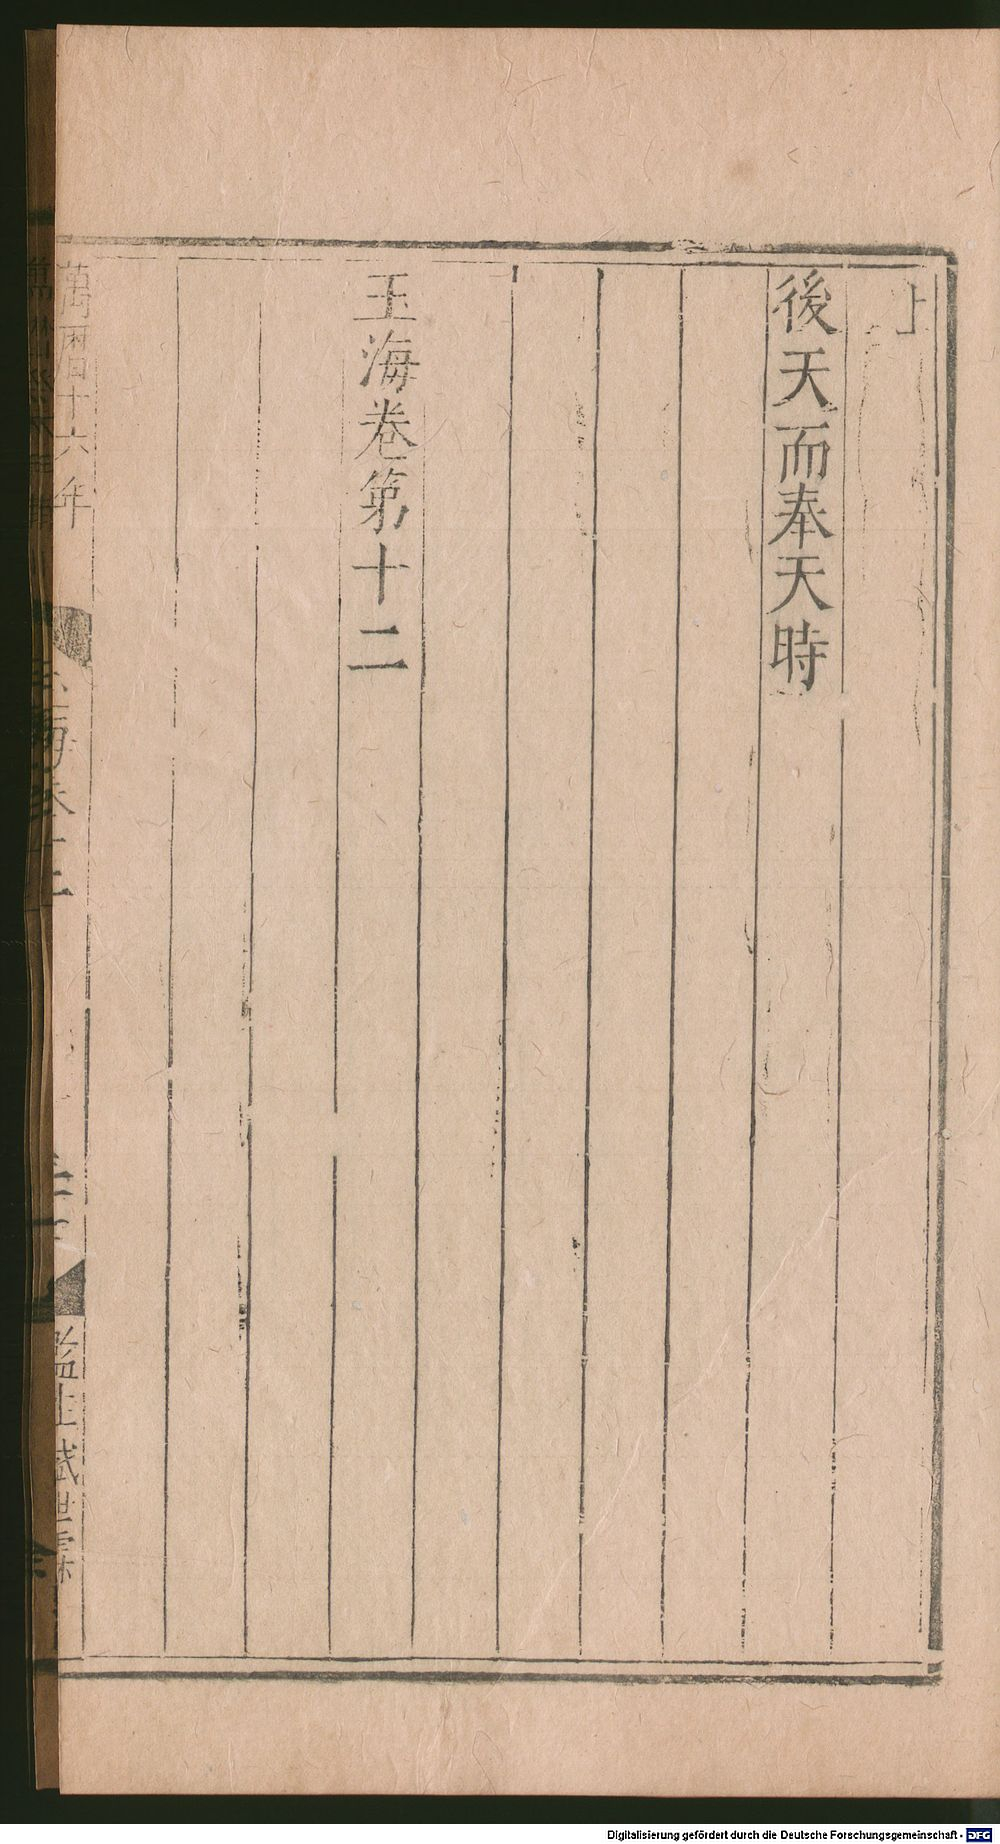 上
後天而奉天時
玉海卷第十二
萬曆十六年
玉海卷十二
監生
Digitalisierung gefördert durch die Deutsche Forschungsgemeinschaft - DFG